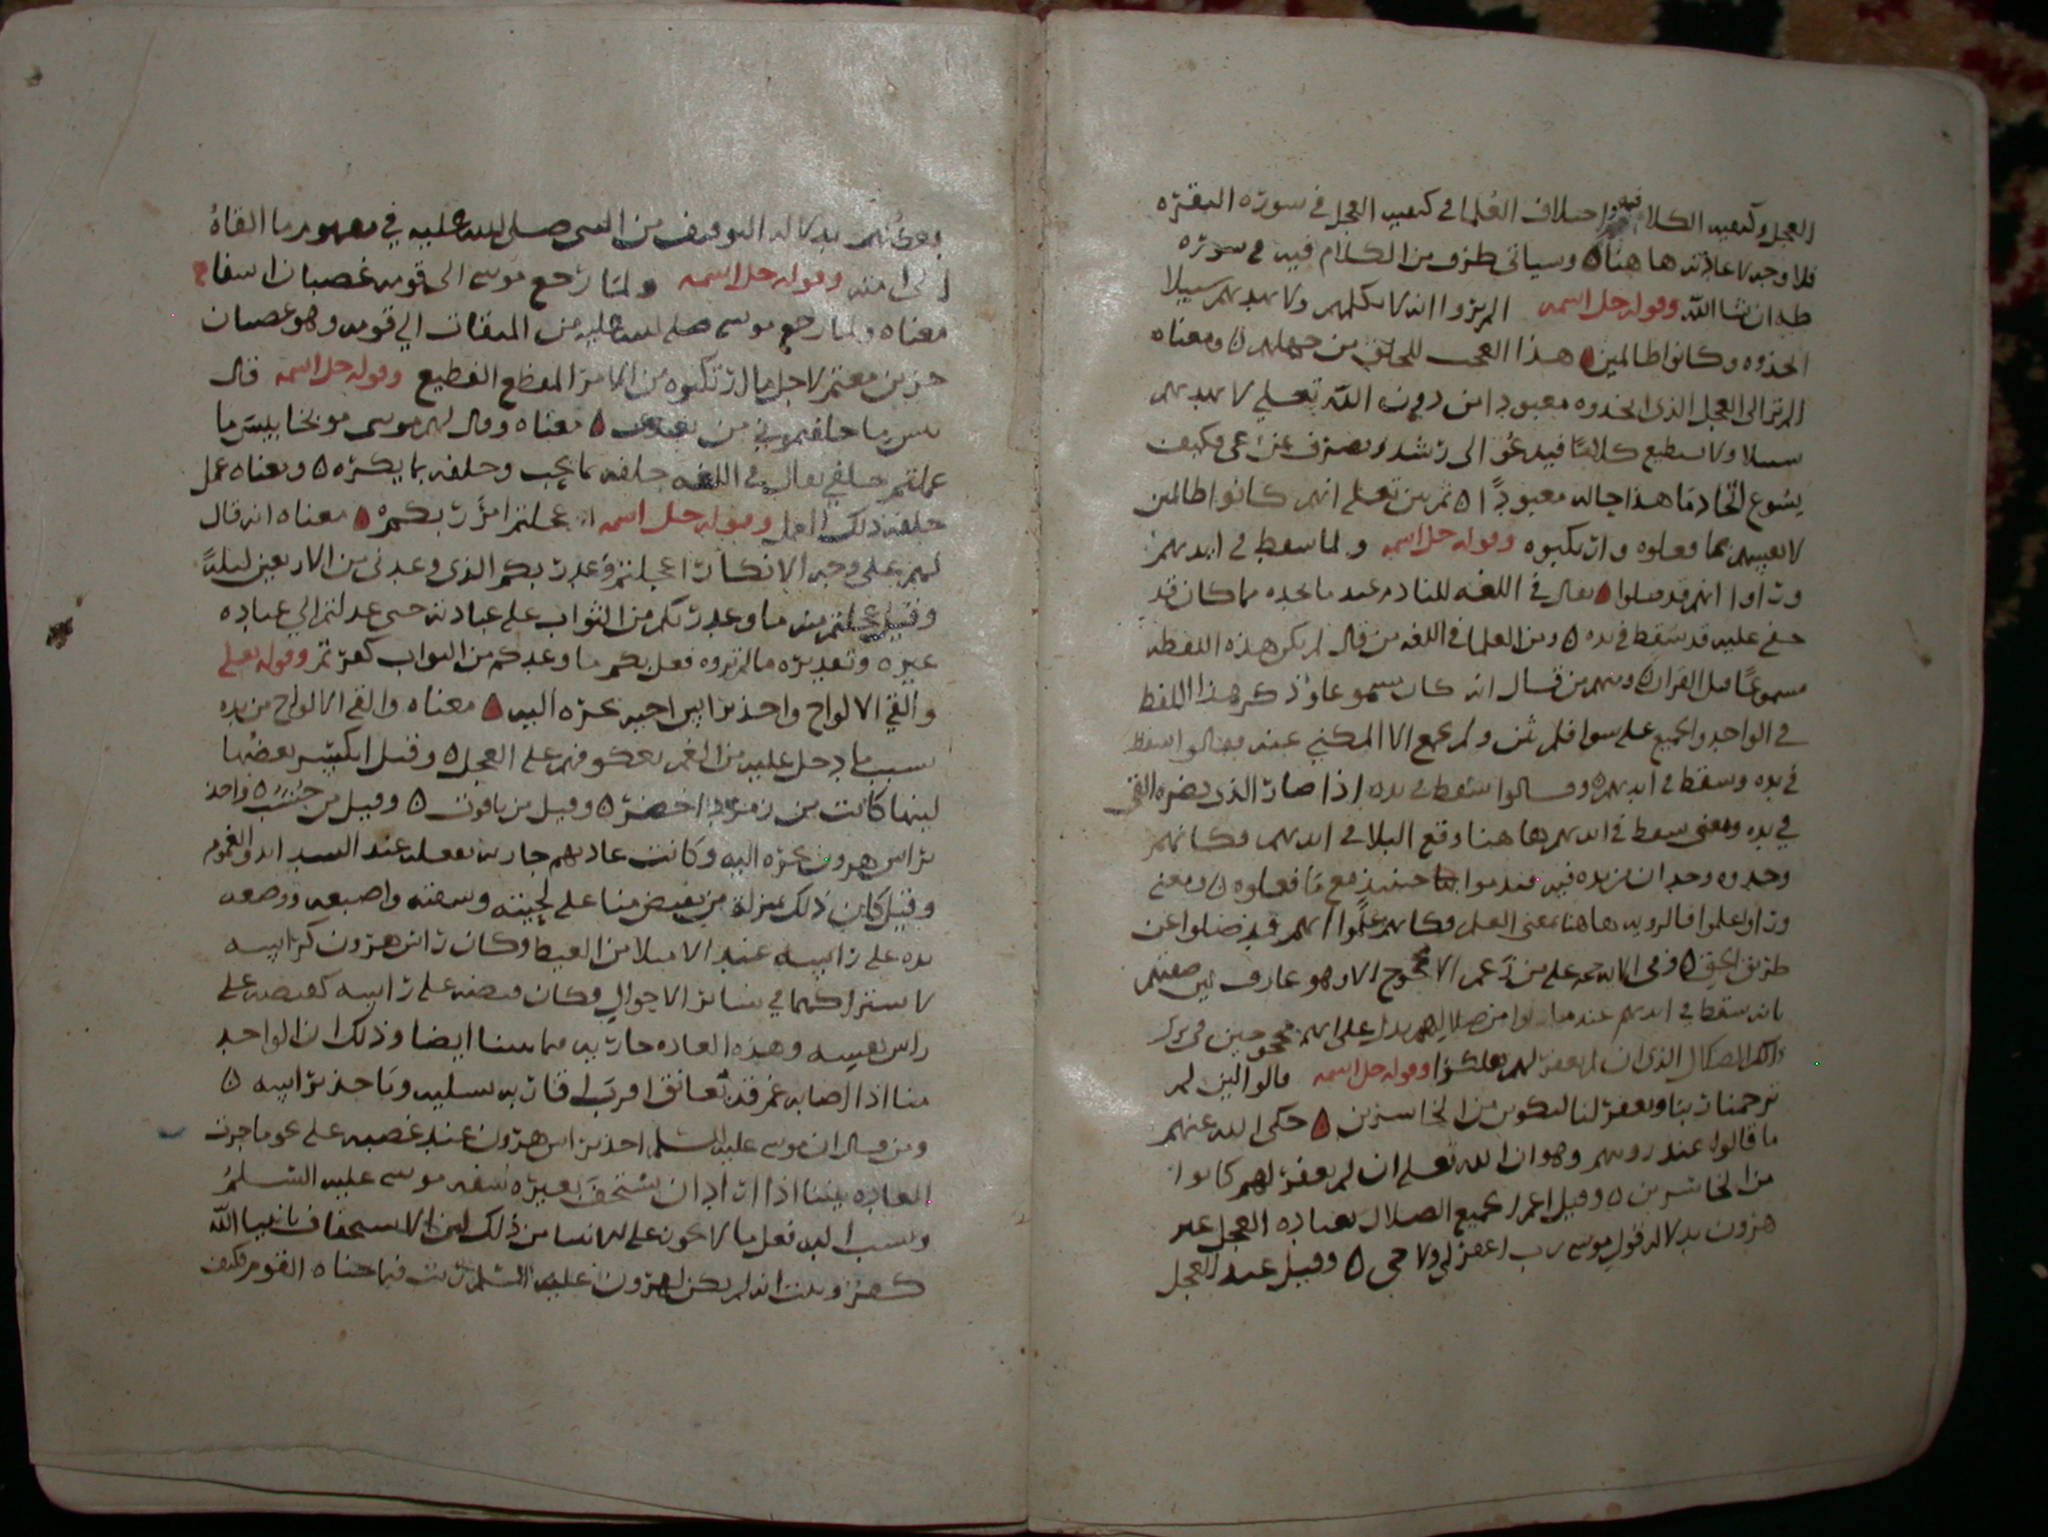 العجل وكيفيه الكلا فيه واختلاف العلما في كيفيه العجل في سورة البقرة
فلا وجه لاعادته هاهنا ۵ وسياتي طرف من الكلام فيه في سورة
طه ان شا الله وقوله جل اسمه الم يروا انه لا يكلمهم ولا يهديهم سبيلا
اتخذوه وكانوا ظالمين ۵ هذا العجب للخلق من جهلهم ۵ ومعناه
الم تر الى العجل الذي اتخذوه معبودا من دون الله تعلى لا يهديهم
سبيلا ولا يستطيع كلاما فيدعو الى رشد ويصرف عن عمى فكيف
يسوغ اتخاذ ما هذا حاله معبودا ۵ ثم بين تعلى انهم كانوا ظالمين
لانفسهم بما فعلوه وارتكبوه وقوله جل اسمه ولما سقط في ايديهم
وراوا انهم قد ضلوا ۵ يقال في اللغه للنادم عند ما يجده مما كان قد
خفي عليه قد سقط في يده ۵ ومن العلما في اللغه من قال لم يكن هذه اللفظه
مسموعا قبل القران ۵ ومنهم من قال انه كان مسموعا وذكر هذا اللفظ
في الواحد والجميع على سوا فلم يثن ولم يجمع الا المكني عنه فقالوا سقط
في يده وسقط في ايديهم ۵ وقالوا سقط في يده اذا صار الذي يضره القي
في يده ومعنى سقط في ايديهم هاهنا وقع البلا في ايديهم فكانهم
وجدوه وجدان من يده فيه فندموا حينئذ مع ما فعلوه ۵ ومعنى
وراوا علموا فالرويه هاهنا بمعنى العلم فكانهم علموا انهم قد ضلوا عن
طريق الحق ۵ وفي الايه حجه على من زعم الا محجوج الا وهو عارف لان صفتهم
بانه سقط في ايديهم عندما من ضلالهم يدل على انهم محجوجين في ترك
ذلك الضلال الذي ان لم يغفر لهم هلكوا وقوله جل اسمه قالوا لين لم
يرحمنا ربنا ويغفر لنا لنكونن من الخاسرين ۵ حكى الله عنهم
ما قالوه عند رويتهم وهو ان الله تعلى ان لم يغفر لهم كانوا
من الخاسرين ۵ وقيل اعم جميع الضلال بعباده العجل غير
هرون بدلاله قول موسى رب اغفر لي ولاخي ۵ وقيل عبد العجل
بعضهم بدلاله التوقيف من النبي صلى الله عليه في مفهوم ما القاه
الى امته وقوله جل اسمه ولما رجع موسى الى قومه غضبان اسفا
معناه ولما رجع موسى صلى الله عليه من الميقات الى قومه وهو غضبان
حزين مغتم لاجل ما ارتكبوه من الامر المفظع الفظيع وقوله جل اسمه قال
بيس ما خلفتموني من بعدي ۵ معناه وقال لهم موسى موبخا بيس ما
عملتم خلفي يقال في اللغه خلفه بما يحب وخلفه بما يكره ۵ ومعناه عمل
خلفه ذلك العمل وقوله جل اسمه اعجلتم امر ربكم ۵ معناه انه قال
لهم على وجه الانكار اعجلتم وعد ربكم الذي وعدني من الاربعين ليلة
وقيل عجلتم منه ما وعد ربكم من الثواب على عبادته حتى عدلتم الى عباده
غيره وتقديره ما لم تروه فعل بكم ما وعدكم من الثواب كفرتم وقوله تعلى
والقى الالواح واخذ براس اخيه يجره اليه ۵ معناه والقى الالواح من يده
بسبب ما دخل عليه من الغم بعكوفهم على العجل ۵ وقيل انكسر بعضها
لينها كانت من زمرد اخضر ۵ وقيل من ياقوت ۵ وقيل من خشب ۵ واخذ
براس هرون يجره اليه وكانت عادتهم جاريه بفعله عند الشدايد والغموم
وقيل كان ذلك بمنزلة من يقبض منا على لحيته وشفته واصبعه ووضعه
يده على راسه عند الامتلا من الغيظ وكان راس هرون كراسه
لاشتراكهما في سائر الاحوال فكان قبضه على راسه كقبضه على
راس نفسه وهذه العاده جاريه فيما بيننا ايضا وذلك ان الواحد
منا اذا اصابه غم قد تعانق اقربا اقاربه بتسليه وياخذ براسه ۵
ومن قال ان موسى عليه السلم اخذ براس هرون عند غضبه على نحو ما جرت
العاده بيننا اذا اراد ان يستخف بغيره سفه موسى عليه السلم
ونسب اليه فعل ما لا يجوز على الانبيا من ذلك لان الاستخفاف بانبيا الله
كفر وثبت انه لم يكن لهرون عليه السلم ذنب فيما جناه القوم فكيف